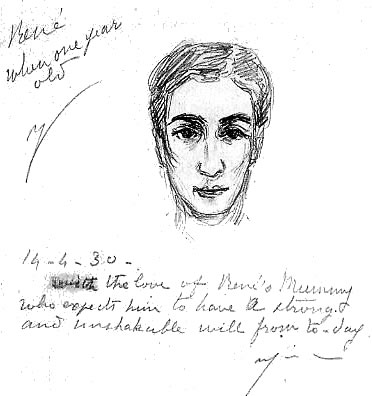 René
when one year
old
14-4-30-
with the love of René's Mummy
who expects him to have a strong
and unshakable will from to-day